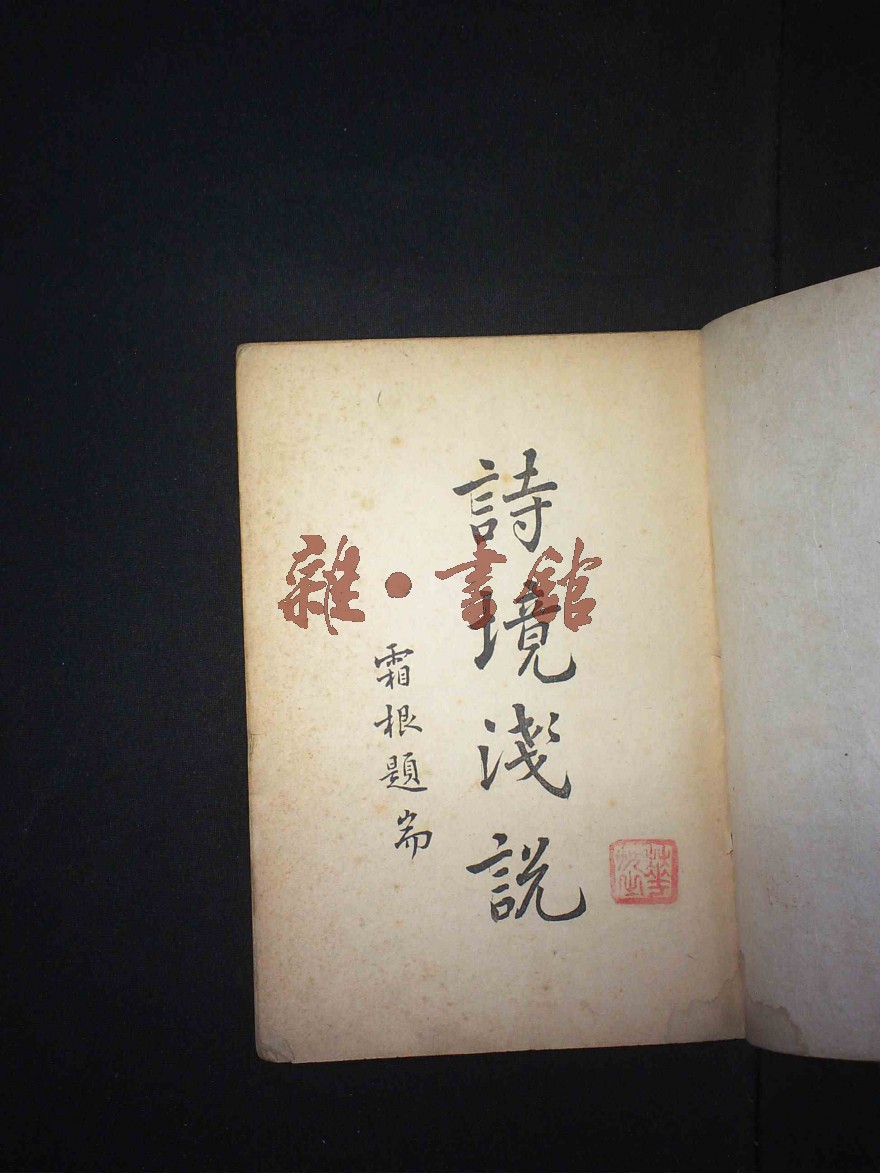 詩境淺説
霜根題耑
雜·書館